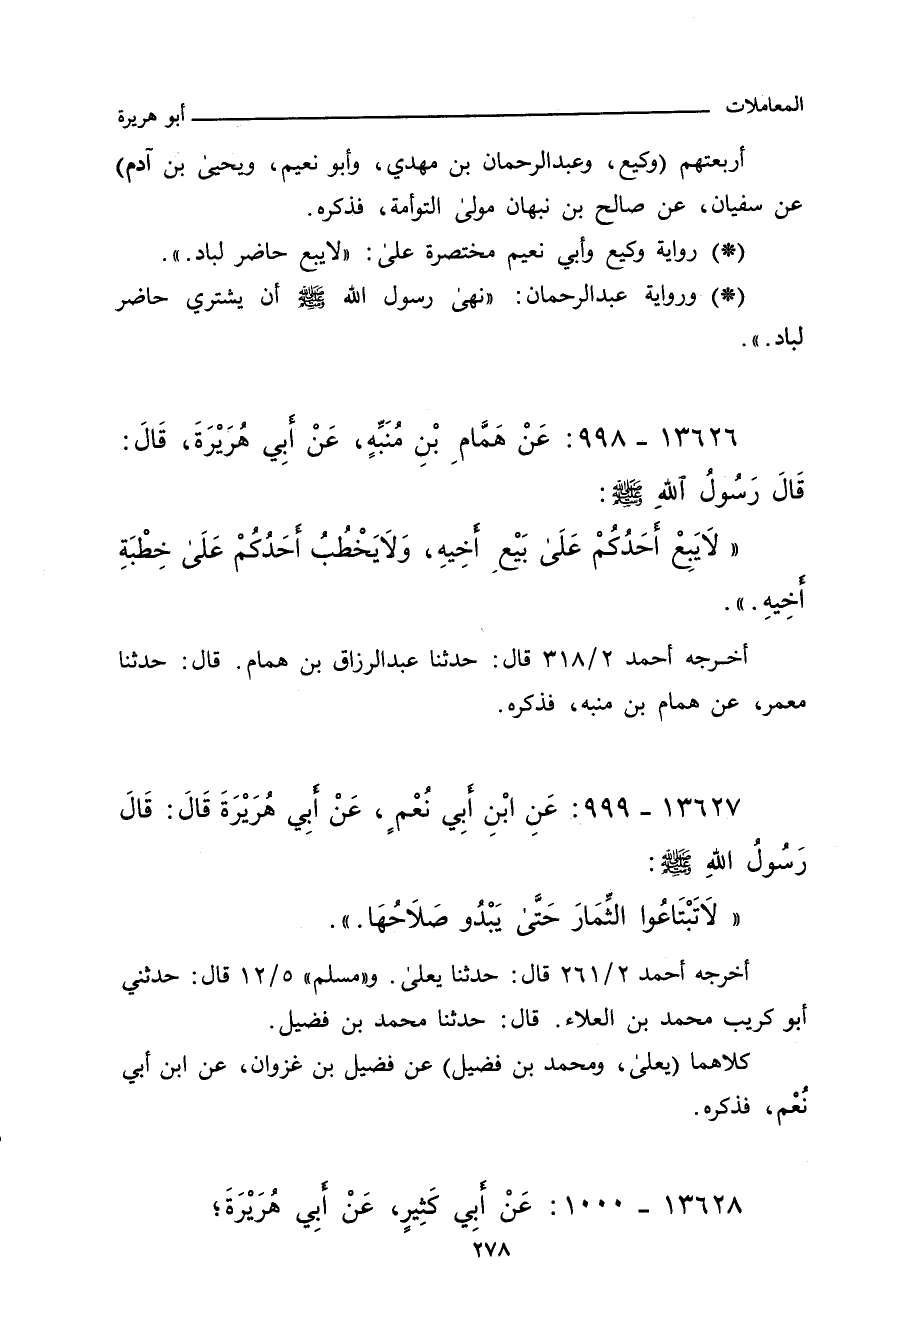 المعاملات ــــــــــــــــــــــــ أبو هريرة
أربعتهم (وكيع، وعبدالرحمان بن مهدي، وأبو نعيم، ويحيىٰ بن آدم)
عن سفيان، عن صالح بن نبهان مولىٰ التوأمة، فذكره.
(*) رواية وكيع وأبي نعيم مختصرة علىٰ: «لايبع حاضر لباد.».
(*) ورواية عبدالرحمان: «نهىٰ رسول الله ﷺ أن يشتري حاضر
لباد.».
١٣٦٢٦ ـ ٩٩٨: عَنْ هَمَّامِ بْنِ مُنَبِّهٍ، عَنْ أَبِي هُرَيْرَةَ، قَالَ:
قَالَ رَسُولُ ٱللهِ ﷺ:
« لَايَبِعْ أَحَدُكُمْ عَلَىٰ بَيْعِ أَخِيهِ، وَلَايَخْطُبُ أَحَدُكُمْ عَلَىٰ خِطْبَةِ
أَخِيهِ.».
أخرجه أحمد ٣١٨/٢ قال: حدثنا عبدالرزاق بن همام. قال: حدثنا
معمر، عن همام بن منبه، فذكره.
١٣٦٢٧ ـ ٩٩٩: عَنِ ابْنِ أَبِي نُعْمٍ، عَنْ أَبِي هُرَيْرَةَ قَالَ: قَالَ
رَسُولُ اللهِ ﷺ:
« لَاتَبْتَاعُوا الثِّمَارَ حَتَّىٰ يَبْدُو صَلَاحُهَا.».
أخرجه أحمد ٢٦١/٢ قال: حدثنا يعلىٰ. و«مسلم» ١٢/٥ قال: حدثني
أبو كريب محمد بن العلاء. قال: حدثنا محمد بن فضيل.
كلاهما (يعلىٰ، ومحمد بن فضيل) عن فضيل بن غزوان، عن ابن أبي
نُعْم، فذكره.
١٣٦٢٨ ـ ١٠٠٠: عَنْ أَبِي كَثِيرٍ، عَنْ أَبِي هُرَيْرَةَ؛
٢٧٨